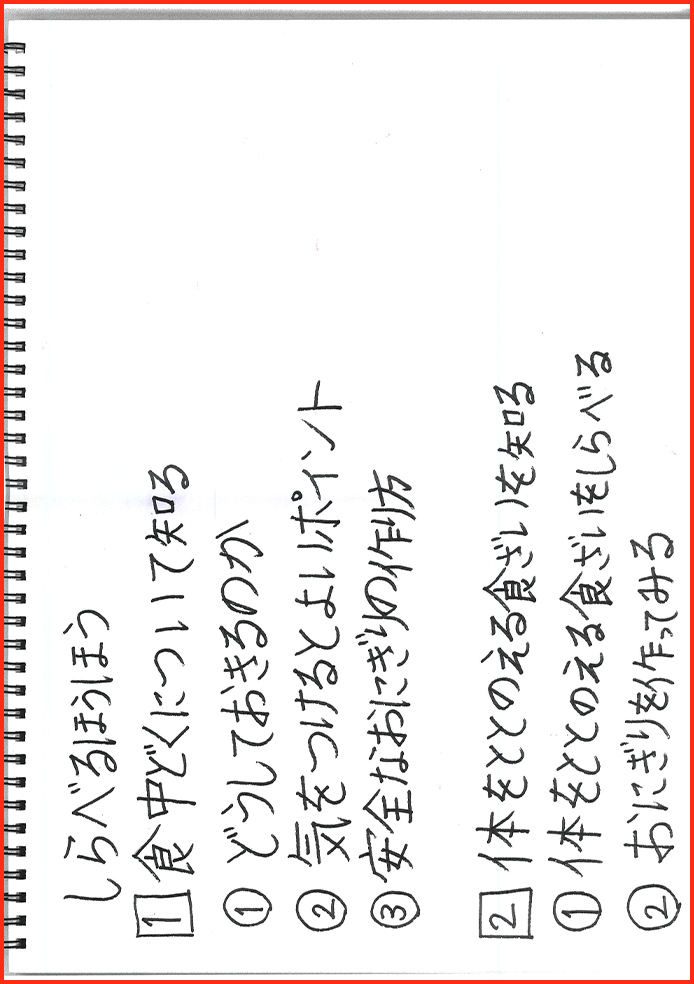 しらべるほうほう
1 食中どくについて知る
① どうしておきるのか
② 気をつけるとよいポイント
③ 安全なおにぎりの作り方
2 体をととのえる食ざいを知る
① 体をととのえる食ざいをしらべる
② おにぎりを作ってみる